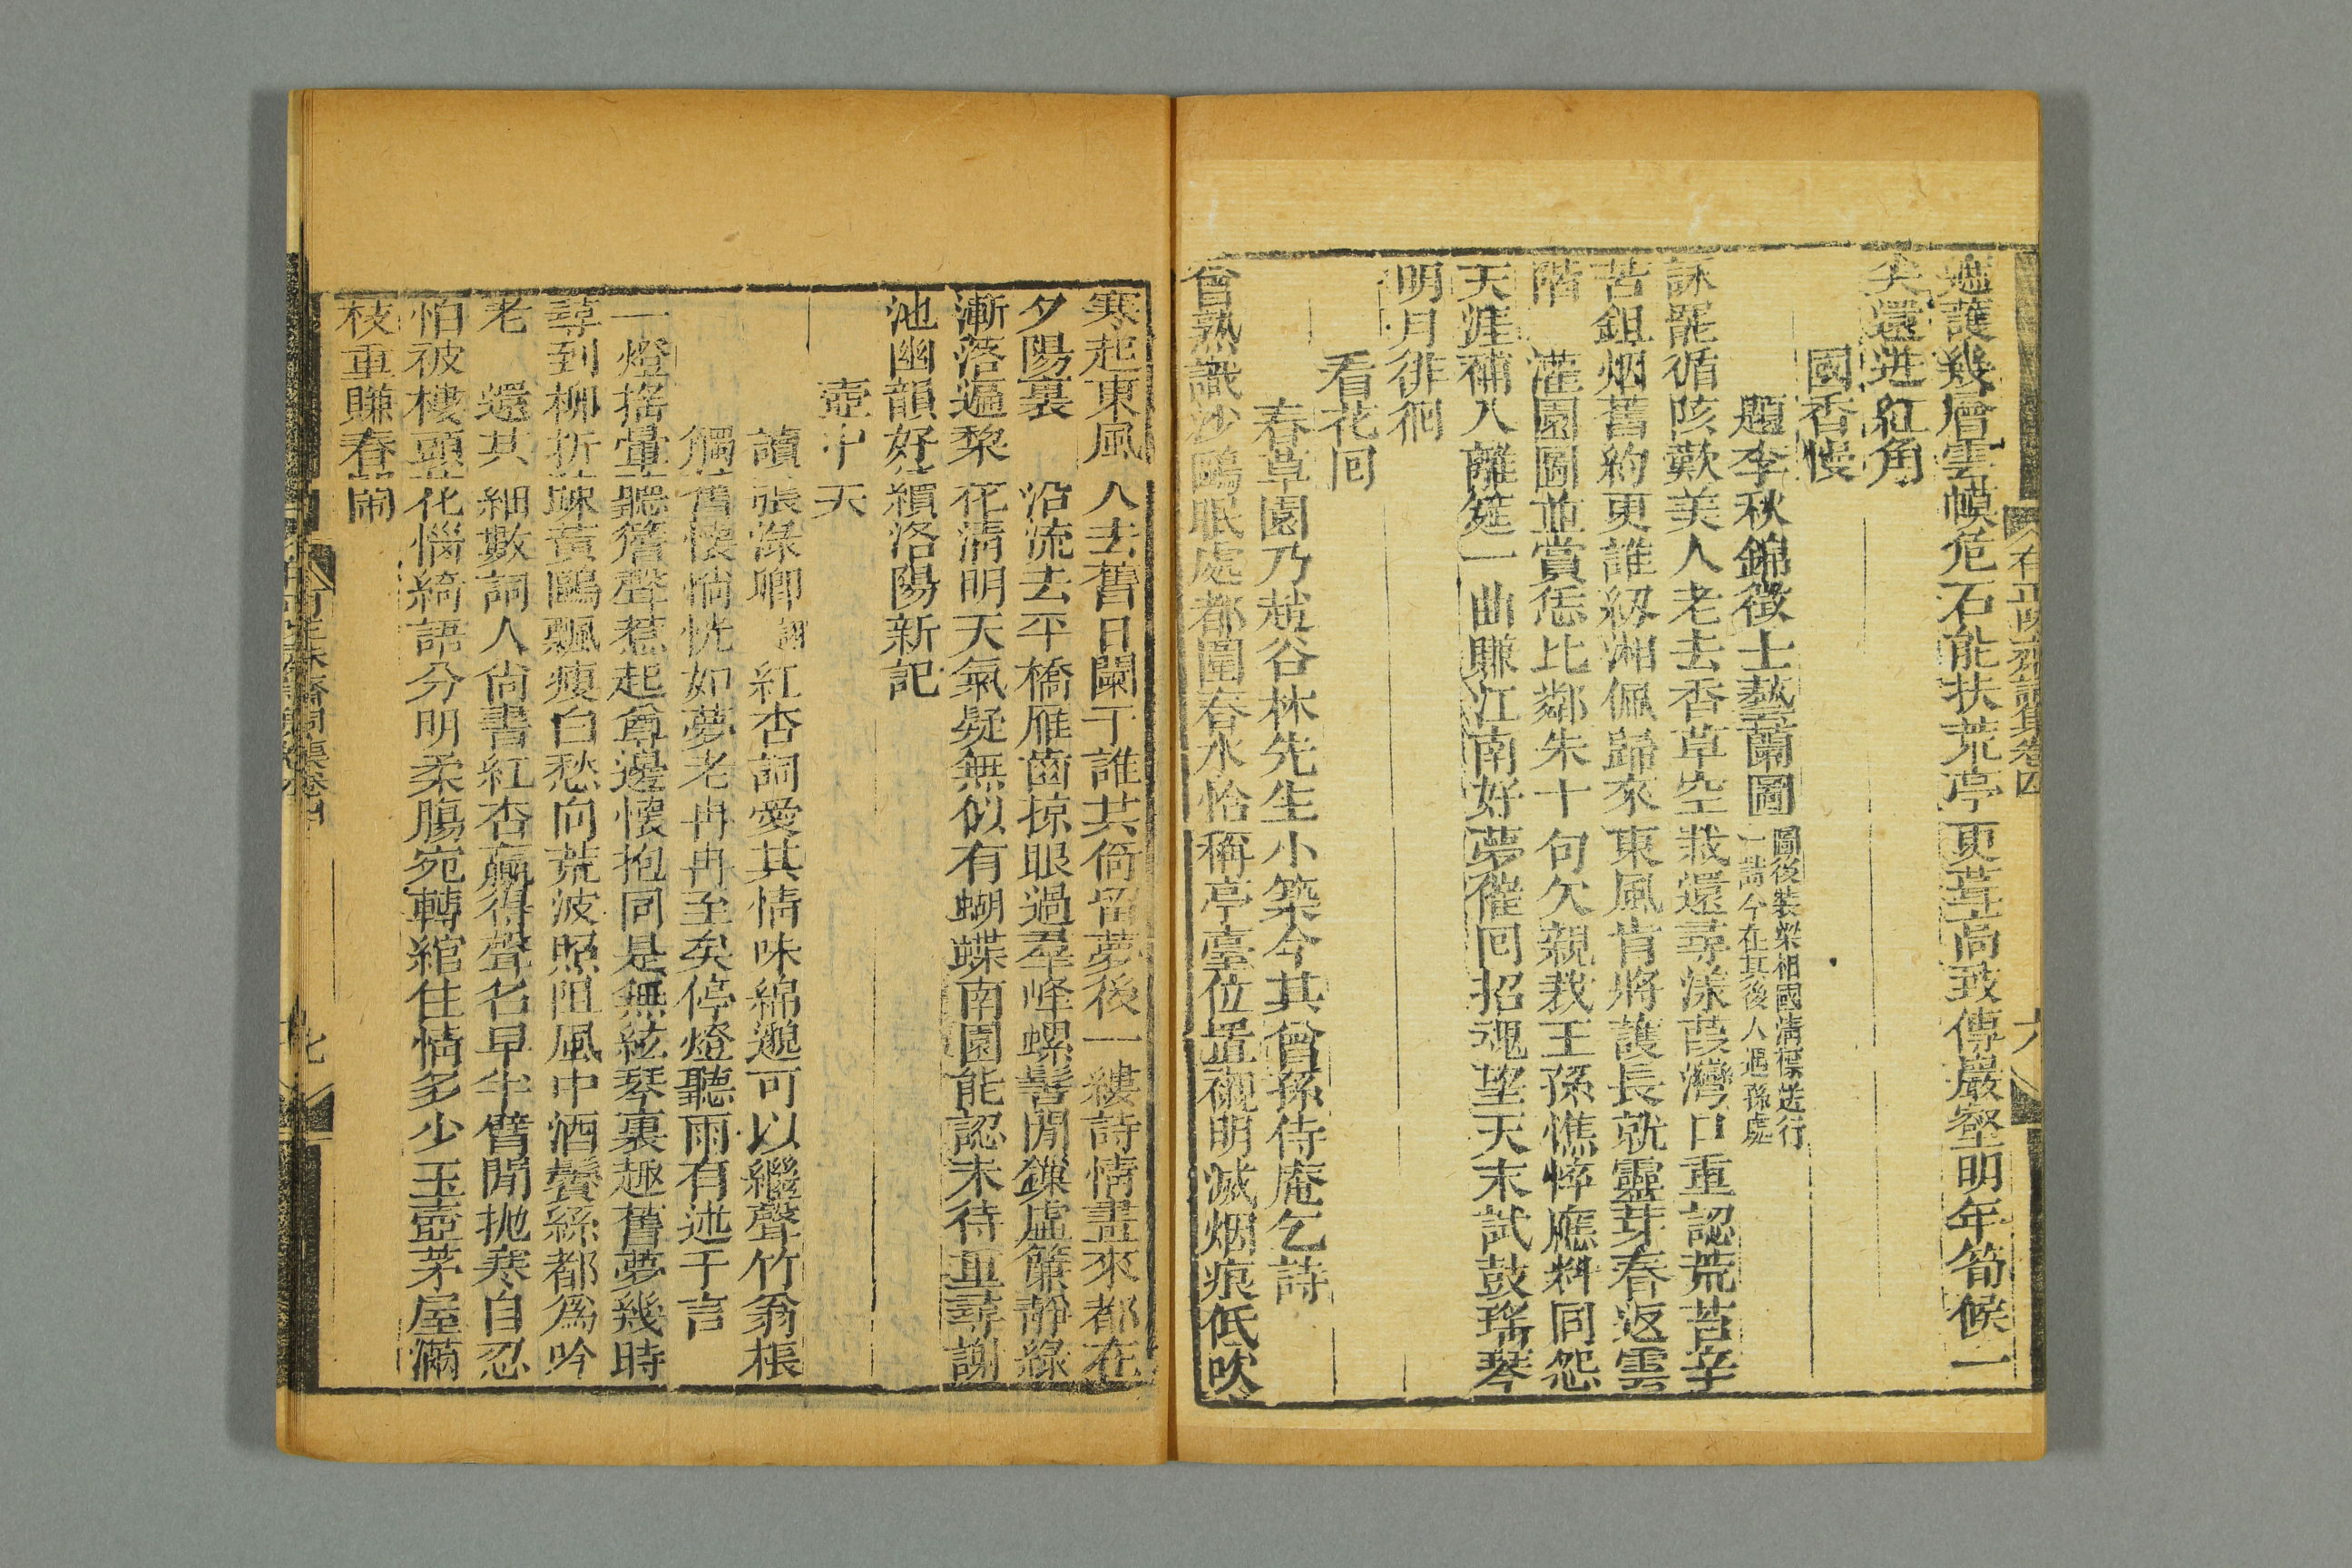 遮護幾層雲幙危石能扶荒亭更葺尚致傳巖壑明年筍候一
尖還迸紅角
國香慢
題李秋錦徵士藝蘭圖
圖後裝梁相國清標送行
一詩今在其後人遇孫處
詠罷循陔歎美人老去香草空栽還尋漾葭灣口重認荒苔辛
苦鉏烟舊約更誰紉湘佩歸來東風肯將護長就靈芽春返雲
階　灌園圖並賞恁比鄰朱十句欠親裁王孫憔悴應料同怨
天涯補入離筵一曲賺江南好夢催回招魂望天末試鼓瑤琴
明月徘徊
看花回
春草園乃趙谷林先生小築今其曾孫侍庵乞詩
曾熟識沙鷗眠處都圍春水恰稱亭臺位置襯明滅烟痕低吹
寒起東風人去舊日闌干誰共倚留夢後一縷詩情畫來都在
夕陽裏　沿流去平橋雁齒掠眼過羣峰螺髻閒鏁虛簾靜綠
漸落遍棃花清明天氣疑無似有蝴蝶南園能認未待重尋謝
池幽韻好續洛陽新記
壺中天
讀張淥卿詞紅杏詞愛其情味綿邈可以繼聲竹翁棖
觸舊懷惝怳如夢老冉冉至矣停燈聽雨有述于言
一燈搖暈聽簷聲惹起尊邊懷抱同是無絃琴裏趣舊夢幾時
尋到柳折疎黃鷗飄瘦白愁向荒波照阻風中酒鬢絲都爲吟
老　還共細數詞人尙書紅杏贏得聲名早半臂閒拋寒自忍
怕被樓頭花惱綺語分明柔腸宛轉綰住情多少玉壺茅屋滿
枝重賺春鬧